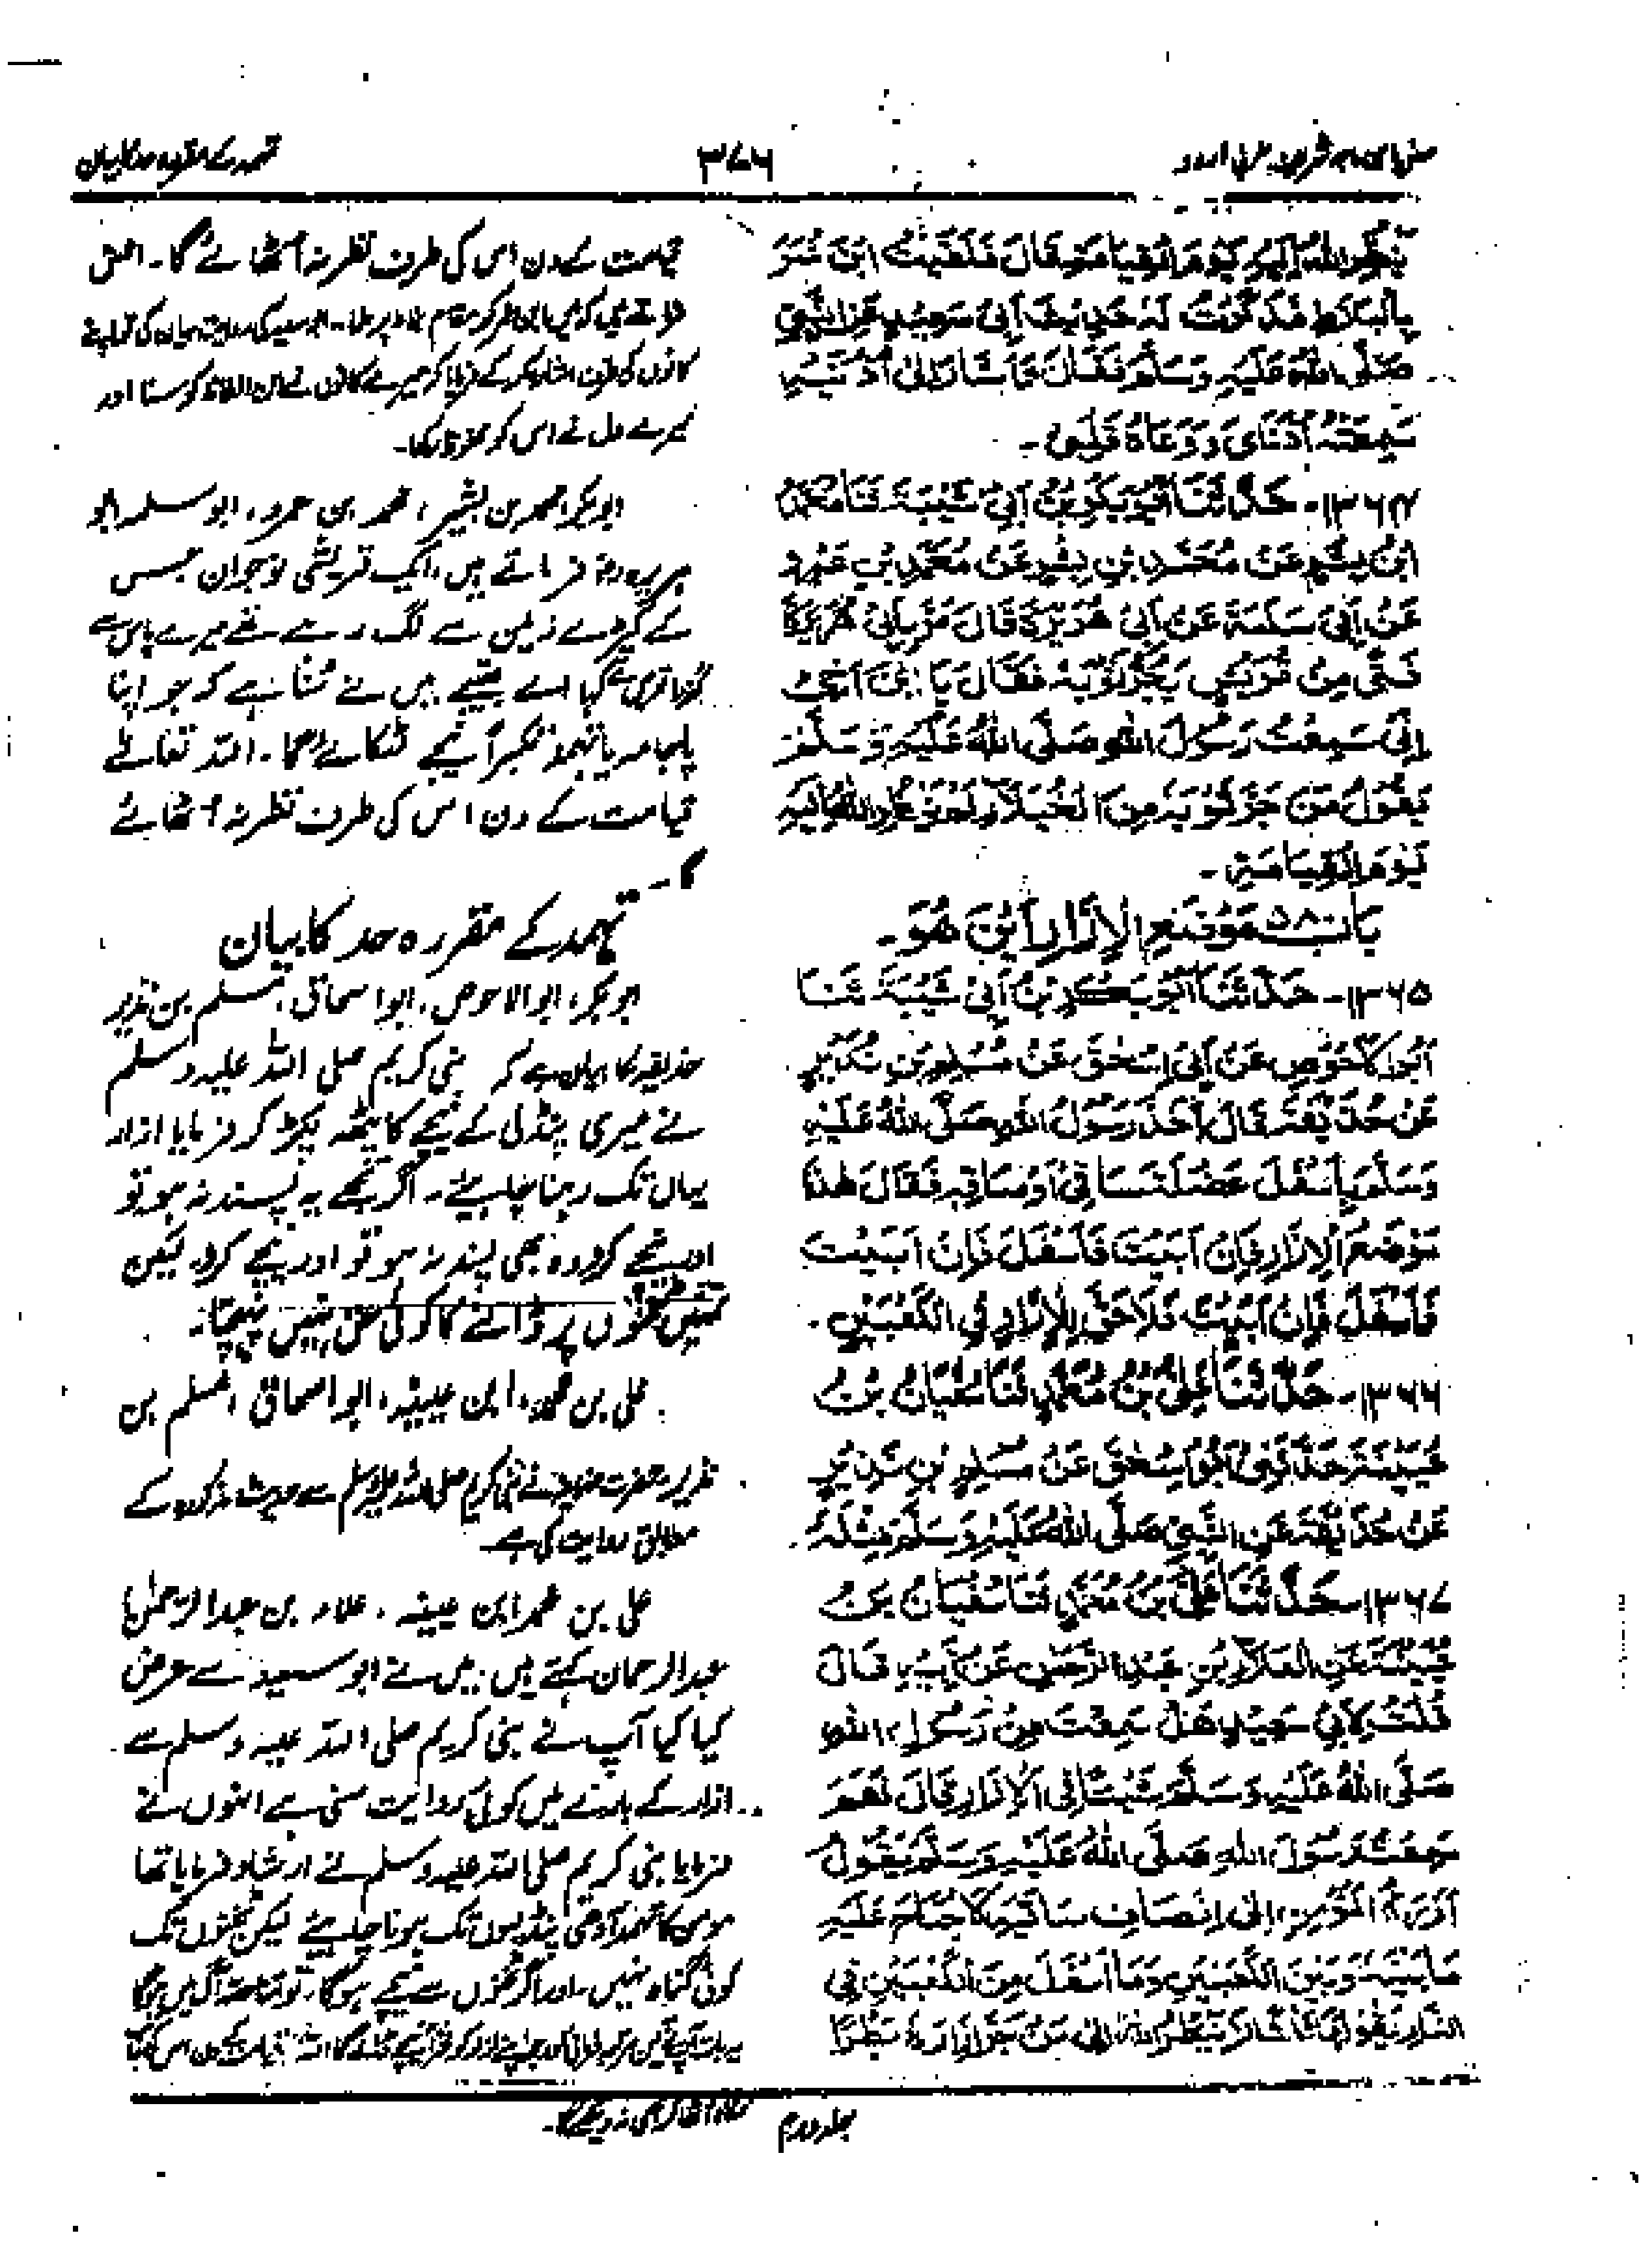 ۳۷۶
ينظر الله إليه يوم القيامة قال فلقيت ابن عمر
بالبلاط فذكرت له حديث أبي سعيد عن النبي
صلى الله عليه وسلم فقال وأشار إلى أذنيه
سمعته أذناي ووعاه قلبي -
۱۳۶۴- حدثنا أبو بكر بن أبي شيبة ثنا محمد
ابن بشر عن محمد بن عمرو
عن أبي سلمة عن أبي هريرة قال مر بأبي هريرة
فتى من قريش يجر ثوبه فقال يا ابن أخي
إني سمعت رسول الله صلى الله عليه وسلم
يقول من جر ثوبه من الخيلاء لم ينظر الله إليه
يوم القيامة -
باب ۵۸۰ موضع الإزار أين هو -
۱۳۶۵- حدثنا أبو بكر بن أبي شيبة ثنا
أبو الأحوص عن أبي إسحق عن مسلم بن نذير
عن حذيفة قال أخذ رسول الله صلى الله عليه
وسلم بأسفل عضلة ساقي أو ساقه فقال هذا
موضع الإزار فإن أبيت فأسفل فإن أبيت
فأسفل فإن أبيت فلا حق للإزار في الكعبين -
۱۳۶۶- حدثنا علي بن محمد ثنا سفيان بن
عيينة حدثني أبو إسحق عن مسلم بن نذير
عن حذيفة عن النبي صلى الله عليه وسلم مثله
۱۳۶۷- حدثنا علي بن محمد ثنا سفيان بن
عيينة عن العلاء بن عبد الرحمن عن أبيه قال
قلت لأبي سعيد هل سمعت من رسول الله
صلى الله عليه وسلم شيئا في الإزار قال نعم
سمعت رسول الله صلى الله عليه وسلم يقول
إزرة المؤمن إلى أنصاف ساقيه لا جناح عليه
ما بينه وبين الكعبين وما أسفل من الكعبين في
النار يقول ثلاثا لا ينظر الله إلى من جر إزاره بطرا
قیامت کے دن اس کی طرف نظر نہ اٹھائے گا۔
میرے دل نے اس کو محفوظ رکھا۔
ابوبکر، محمد بن بشیر، محمد بن عمرو، ابو سلمہ ابو
ہریرہ رضہ فرماتے ہیں، ایک قریشی نوجوان جس
کے کپڑے زمین سے لگ رہے تھے میرے پاس سے
گزرا میں نے کہا اے بھتیجے میں نے سنا ہے کہ جو اپنا
پاجامہ یا تہمد تکبراً نیچے لٹکائے رکھا۔ اللہ تعالٰے
قیامت کے دن اس کی طرف نظر نہ اٹھائے
گا۔
تہمد کے مقررہ حد کا بیان
ابوبکر، ابوالاحوص، ابو اسحاق، مسلم بن نذیر
حذیفہ کا بیان ہے کہ نبی کریم صلی اللہ علیہ وسلم
نے میری پنڈلی کے نیچے کا پٹھہ پکڑ کر فرمایا ازار
یہاں تک رہنا چاہیئے۔ اگر تجھے یہ پسند نہ ہو تو
اور نیچے کرلو وہ بھی پسند نہ ہو تو اور نیچے کرلو، لیکن
تمہیں ٹخنوں پر ڈالنے کا کوئی حق نہیں پہنچتا۔
علی بن محمد، ابن عیینہ، ابو اسحاق، مسلم بن
نذیر، حضرت حذیفہ نے نبی کریم صلی اللہ علیہ وسلم سے حدیث مذکورہ کے
مطابق روایت کی ہے۔
علی بن محمد ابن عیینہ، علاء بن عبدالرحمٰن
عبدالرحمان کہتے ہیں، میں نے ابو سعید سے عرض
کیا کیا آپ نے نبی کریم صلی اللہ علیہ وسلم سے
ازار کے بارے میں کوئی روایت سنی ہے انہوں نے
فرمایا نبی کریم صلی اللہ علیہ وسلم نے ارشاد فرمایا تھا
مومن کا تہمد آدھی پنڈلیوں تک ہونا چاہیئے لیکن ٹخنوں تک
کوئی گناہ نہیں، اور اگر ٹخنوں سے نیچے ہوگا، تو
جلد دوم